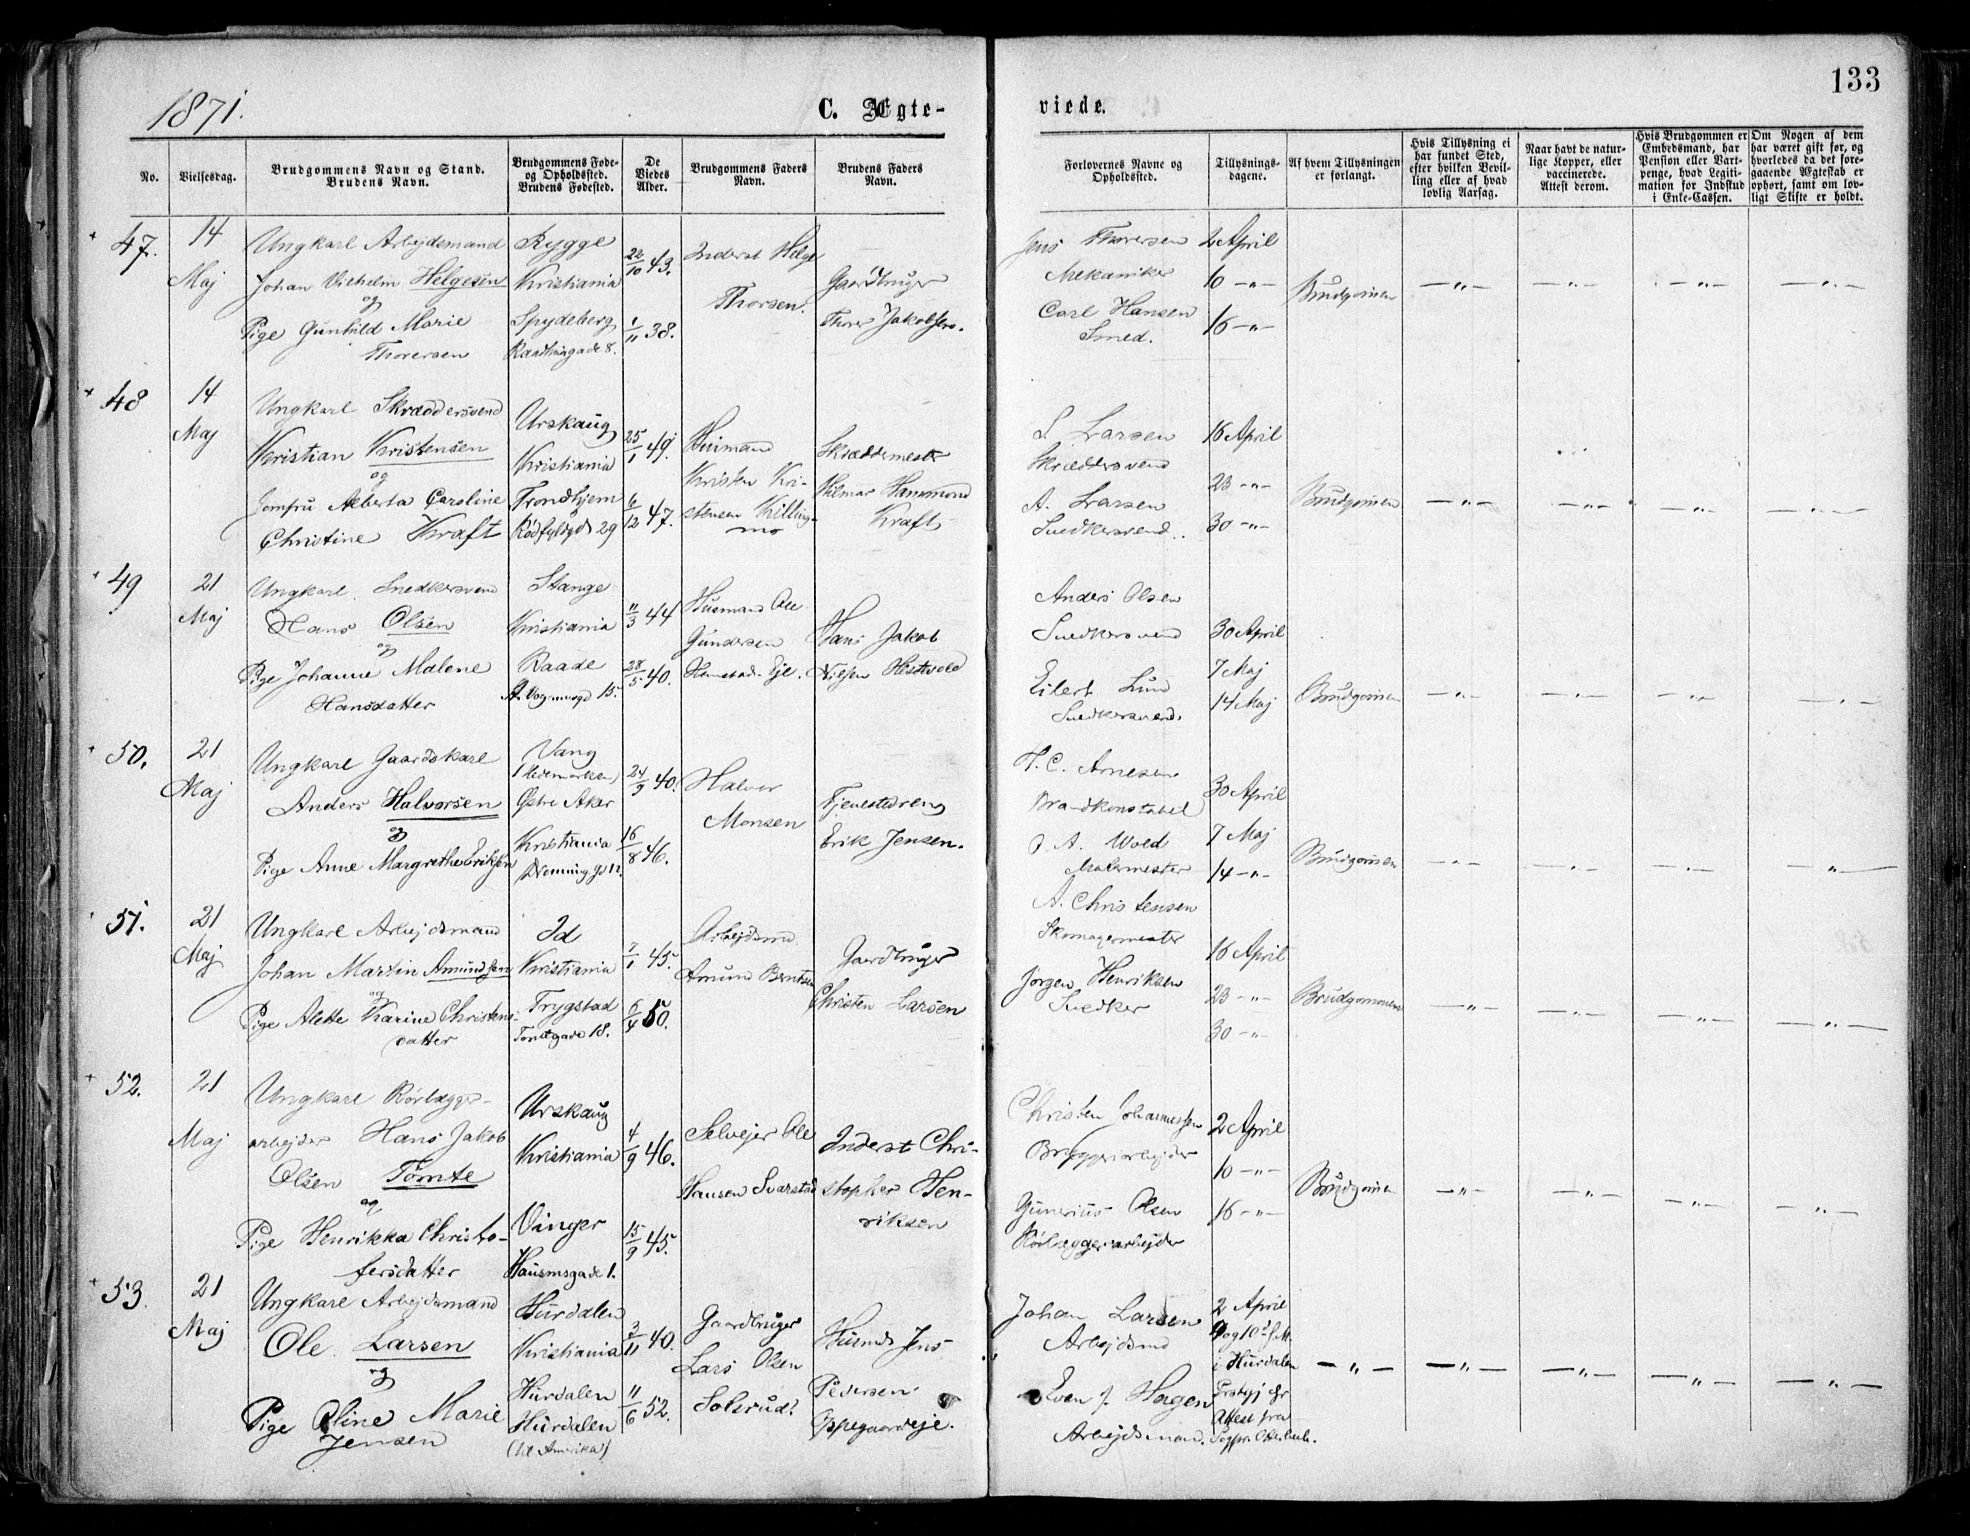 133
1871.
C. Ægte-
viede.
No.
Vielsesdag.
Brudgommens Navn og Stand.
Brudens Navn.
Brudgommens Føde-
og Opholdssted.
Brudens Fødested.
De
Viedes
Alder.
Brudgommens Faders
Navn.
Brudens Faders
Navn.
Forlovernes Navne og
Opholdssted.
Tillysnings-
dagene.
Af hvem Tillysningen
er forlangt.
Hvis Tillysning ei
har fundet Sted,
efter hvilken Bevil-
ling eller af hvad
lovlig Aarsag.
Naar havt de natur-
lige Kopper, eller
vaccinerede.
Attest derom.
Hvis Brudgommen er
Embedsmand, har
Pension eller Vart-
penge, hvad Legiti-
mation for Indskud
i Enke-Cassen.
Om Nogen af dem
har været gift før, og
hvorledes da det fore-
gaaende Ægteskab er
ophørt, samt om lov-
ligt Skifte er holdt.
47.
14
Maj
Ungkarl Arbejdsmand
Johan Vilhelm Helgesen
og
Pige Gunhild Marie
Thoresen
Rygge
Kristiania
Spydeberg
22/10 43.
1/11 38.
Inderst Helge
Thorsen.
Gaardbruger
Thore Jakobsen.
Jens Thoresen
Mekaniker
Carl Hansen
Smed.
2 April
10 -"-
16 -"-
Brudgomen
-"-
-"-
-"-
-"-
48
14
Maj
Ungkarl Skræddersvend
Kristian Kristensen
og
Jomfru Alberta Caroline
Christine Kraft
Urskaug
Kristiania
Trondhjem
25/1 49.
6/12 47.
Husmand
Kristen Kri-
stensen Killing-
mo
Skræddermester
Hilmar Hammond
Kraft
S. Larsen
Skræddersvend
A. Larsen
Snedkersvend.
16 April
23 -"-
30 -"-
Brudgomen
-"-
-"-
-"-
-"-
49
21
Maj
Ungkarl Snedkersvend
Hans Olsen
og
Pige Johanne Malene
Hansdatter
Stange
Kristiania
Raade
11/3 44
28/5 40.
Husmand Ole
Gundersen
Hans Jakob
Nilsen
Anders Olsen
Snedkersvend
Eilert Lund
Snedkersvend.
30 April
7 Maj
14 Maj
Brudgomen
-"-
-"-
-"-
-"-
50.
21
Maj
Ungkarl Gaardskarl
Anders Halvorsen
og
Pige Anne Margrethe Eriksen
Vang
(Hedemarken)
Østre Aker
Kristiania
24/3 40.
16/8 46.
Halvor
Monsen
Tjenestedreng
Erik Jensen.
H. C. Arnesen
Brandkonstabel
A. Wold
Malermester
30 April
7 Maj
14 -"-
Brudgomen
-"-
-"-
-"-
-"-
51.
21
Maj
Ungkarl Arbejdsmand
Johan Martin Amundsen
og
Pige Alette Karine Christens-
datter
Id
Kristiania
Trygstad
Tomtegade 18.
7/1 45.
6/4 50.
Arbejdsmd.
Amund Berntsen
Gaardbruger
Christen Larsen
A. Christensen
Skomagermester
Jørgen Henriksen
Snedker
16 April
23 -"-
30 -"-
Brudgommen
-"-
-"-
-"-
-"-
52.
21
Maj
Ungkarl Rørlægger-
arbejder Hans Jakob
Olsen Tømte
og
Pige Henrikka Christo-
fersdatter
Urskaug
Kristiania
Vinger
Hausmsgade 1.
4/9 46.
15/9 45.
Selvejer Ole
Hansen Svarstad
Inderst Chri-
stopher Hen-
riksen
Christen Johannessen
Bryggeriarbejder
Gunerius Olsen
Rørlæggerarbejder
2 April
10 -"-
16 -"-
Brudgomen
-"-
-"-
-"-
-"-
53.
21
Maj
Ungkarl Arbejdsmand
Ole Larsen
og
Pige Oline Marie
Jensen
Hurdalen
Kristiania
Hurdalen
Hurdalen
(til Amerika)
3/11 40.
11/6 52.
Gaardbruger
Lars Olsen
Solsrud.
Husmd Jens
Pedersen
Oppegaardeje.
Johan Larsen
Arbejdsmd
Even J. Hagen
Arbejdsmand.
2 April
i Hurdalen
Attest fra
-"-
-"-
-"-
-"-
-"-